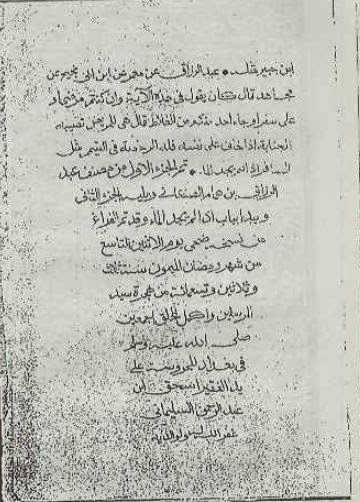 ابن جبير مثله • عبد الرزاق عن معمر عن ابن أبي نجيح عن
مجاهد قال كان يقول في هذه الآية وإن كنتم مرضى أو
على سفر أو جاء أحد منكم من الغائط قال هي للمريض تصيبه
الجنابة إذا خاف على نفسه فله الرخصة في التيمم مثل
المسافر إذا لم يجد الماء • تم الجزء الأول من مصنف عبد
الرزاق بن همام الصنعاني ويليه الجزء الثاني
وبدايته باب إذا لم يجد الماء وقد تم الفراغ
من نسخه ضحى يوم الاثنين التاسع
من شهر رمضان الميمون سنة ثلاث
وثلاثين وتسعمائة من هجرة سيد
المرسلين وأكمل الخلق أجمعين
صلى الله عليه وسلم
في بغداد المحروسة على
يد الفقير إسحق بن
عبد الرحمن السليماني
غفر الله له ولوالديه